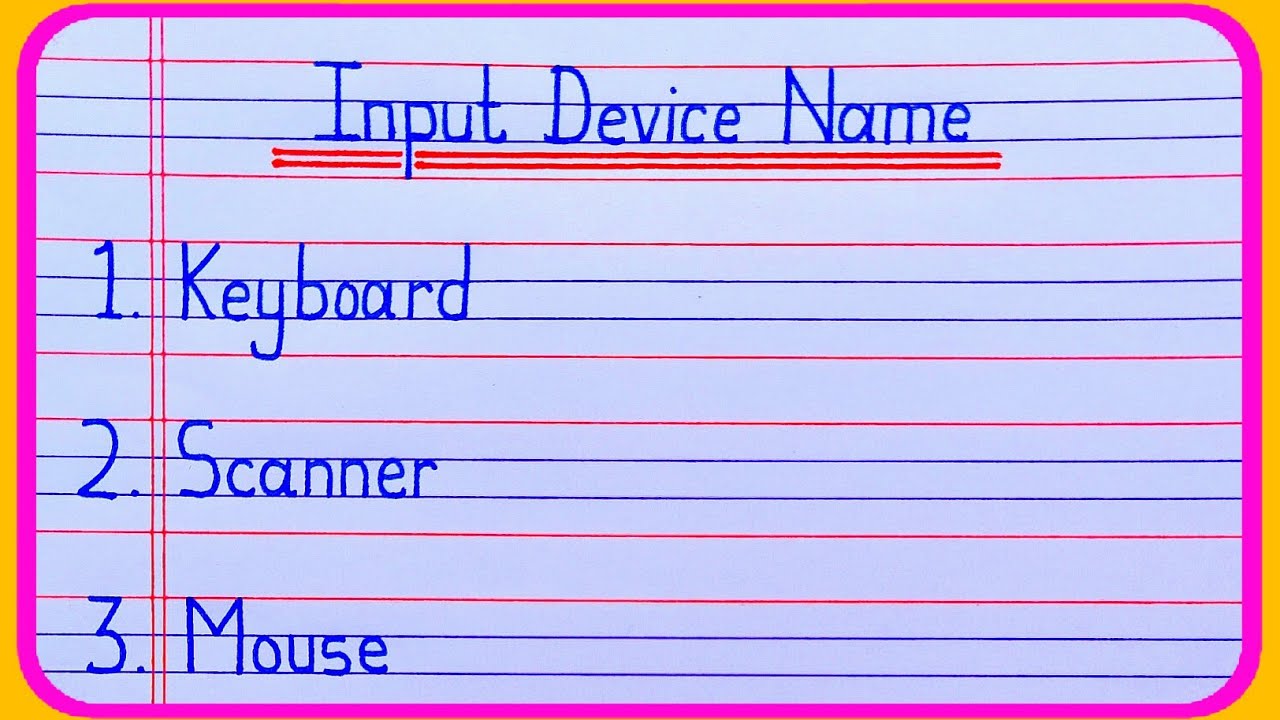 Input Device Name
1. Keyboard
2. Scanner
3. Mouse